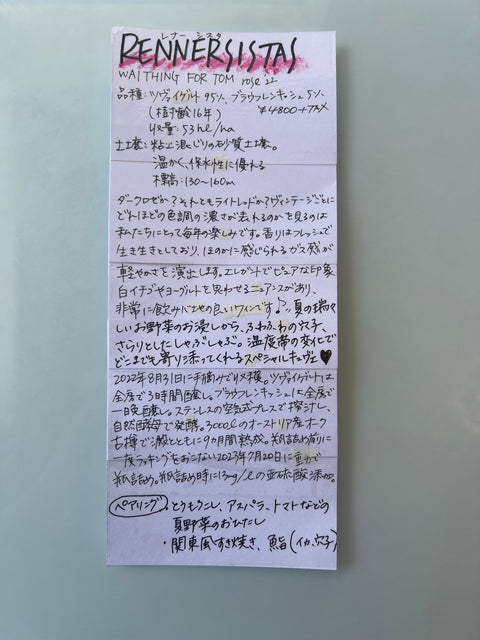 レナー シスタ
RENNERSISTAS
WAITHING FOR TOM rose 22
品種:ツヴァイゲルト 95%、ブラウフレンキッシュ5%
(樹齢16年) ¥4800+TAX
収量:53hl/ha
土壌:粘土混じりの砂質土壌。
温かく、保水性に優れる
標高:130〜160m
ダークロゼか?それともライトレッドか?ヴィンテージごとに
どれほどの色調の濃さが表れるのかを見るのは
私たちにとって毎年の楽しみです。香りはフレッシュで
生き生きとしており、ほのかに感じられるガス感が
軽やかさを演出します。エレガントでピュアな印象
白イチゴやヨーグルトを思わせるニュアンスがあり、
非常に飲みやすやの良いワインです♪〃夏の瑞々
しいお野菜のお浸しから、ふわふわの穴子、
さらりとしたしゃぶしゃぶ。温度帯の変化で
どこまでも寄り添ってくれるスペシャルキュヴェ♥
2022年8月31日に手摘みで収穫。ツヴァイゲルトは
全房で3時間醸し。ブラウフレンキッシュは全房で
一晩醸し。ステンレスの空気式プレスで搾汁し、
自然酵母で発酵。3000ℓのオーストリア産オーク
古樽で澱とともに9か月間熟成。瓶詰め前に
一度ラッキングをおこない2023年7月20日に重力で
瓶詰め。瓶詰め時に13mg/ℓの亜硫酸添加。
ペアリング ・とうもろこし、アスパラ、トマトなどの
夏野菜のおひたし
・関東風すき焼き、鮨(イカ、穴子)